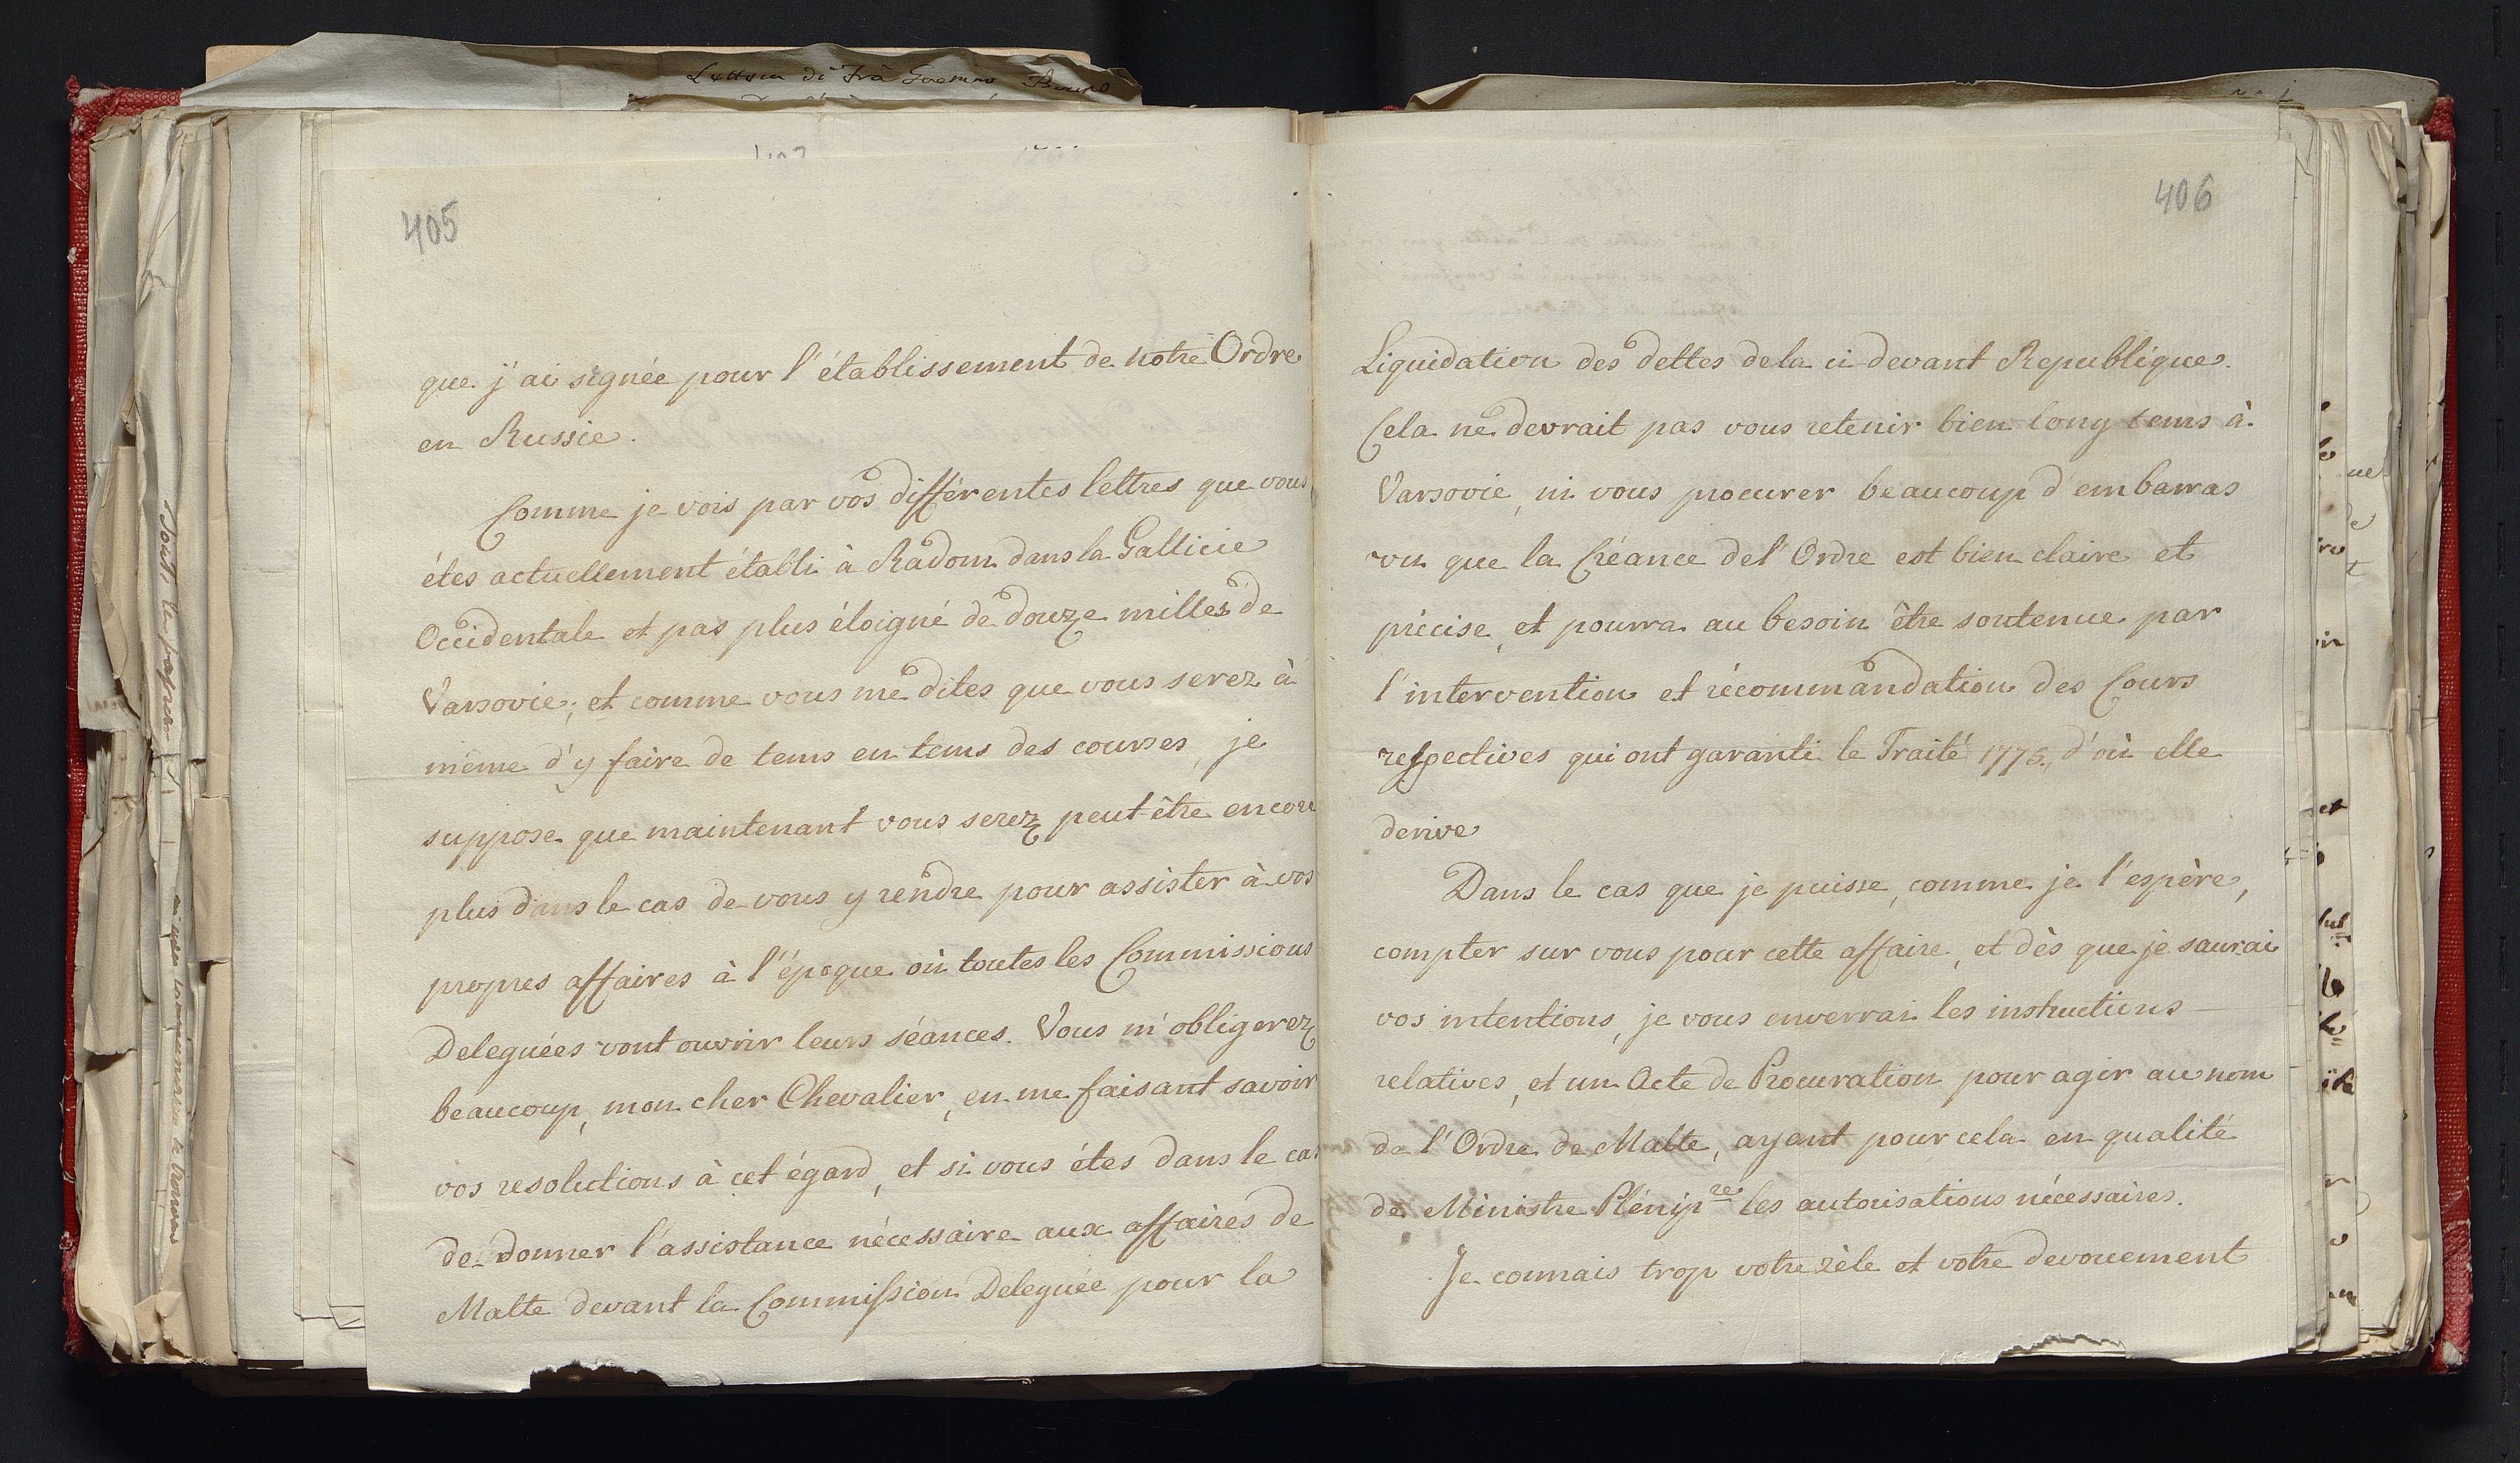 405
que j'ai signée pour l'établissement de notre Ordre
en Russie.
Comme je vois par vos différentes lettres que vous
étes actuellement établi à Radom dans la Gallicie
Occidentale et pas plus éloigné de douze milles de
Varsovie; et comme vous me dites que vous serez à
même d'y faire de tems en tems des courses, je
suppose que maintenant vous serez peut être encore
plus dans le cas de vous y rendre pour assister à vos
propres affaires à l'époque où toutes les Commissions
Deleguées vont ouvrir leurs séances. Vous m'obligerez
beaucoup, mon cher Chevalier, en me faisant savoir
vos resolutions à cet égard, et si vous étes dans le cas
de donner l'assistance nécessaire aux affaires de
Malte devant la Commission Deleguée pour la
406
Liquidation des dettes de la ci-devant Republique.
Cela ne devrait pas vous retenir bien long tems à
Varsovie, ni vous procurer beaucoup d'embarras
vu que la Créance de l'Ordre est bien claire et
précise, et pourra au besoin être soutenue par
l'intervention et récommandation des Cours
respectives qui ont garanti le Traité 1775., d'où elle
derive
Dans le cas que je puisse, comme je l'espère,
compter sur vous pour cette affaire, et dès que je saurai
vos intentions, je vous enverrai les instructions
relatives, et un Acte de Procuration pour agir au nom
de l'Ordre de Malte, ayant pour cela en qualité
de Ministre Plénip.re les autorisations nécessaires.
Je connais trop votre zèle et votre devouement